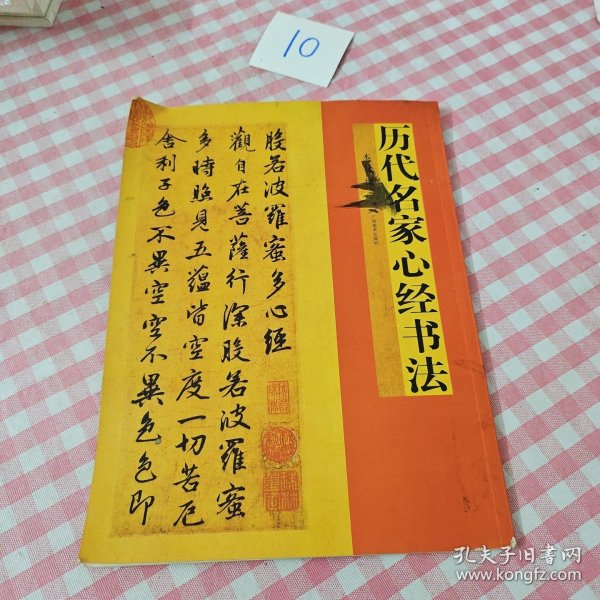 10
历代名家心经书法
般若波罗蜜多心經
觀自在菩薩行深般若波羅蜜
多時照見五蕴皆空度一切苦厄
舍利子色不異空空不異色色即
孔夫子旧书网
www.kongfz.com